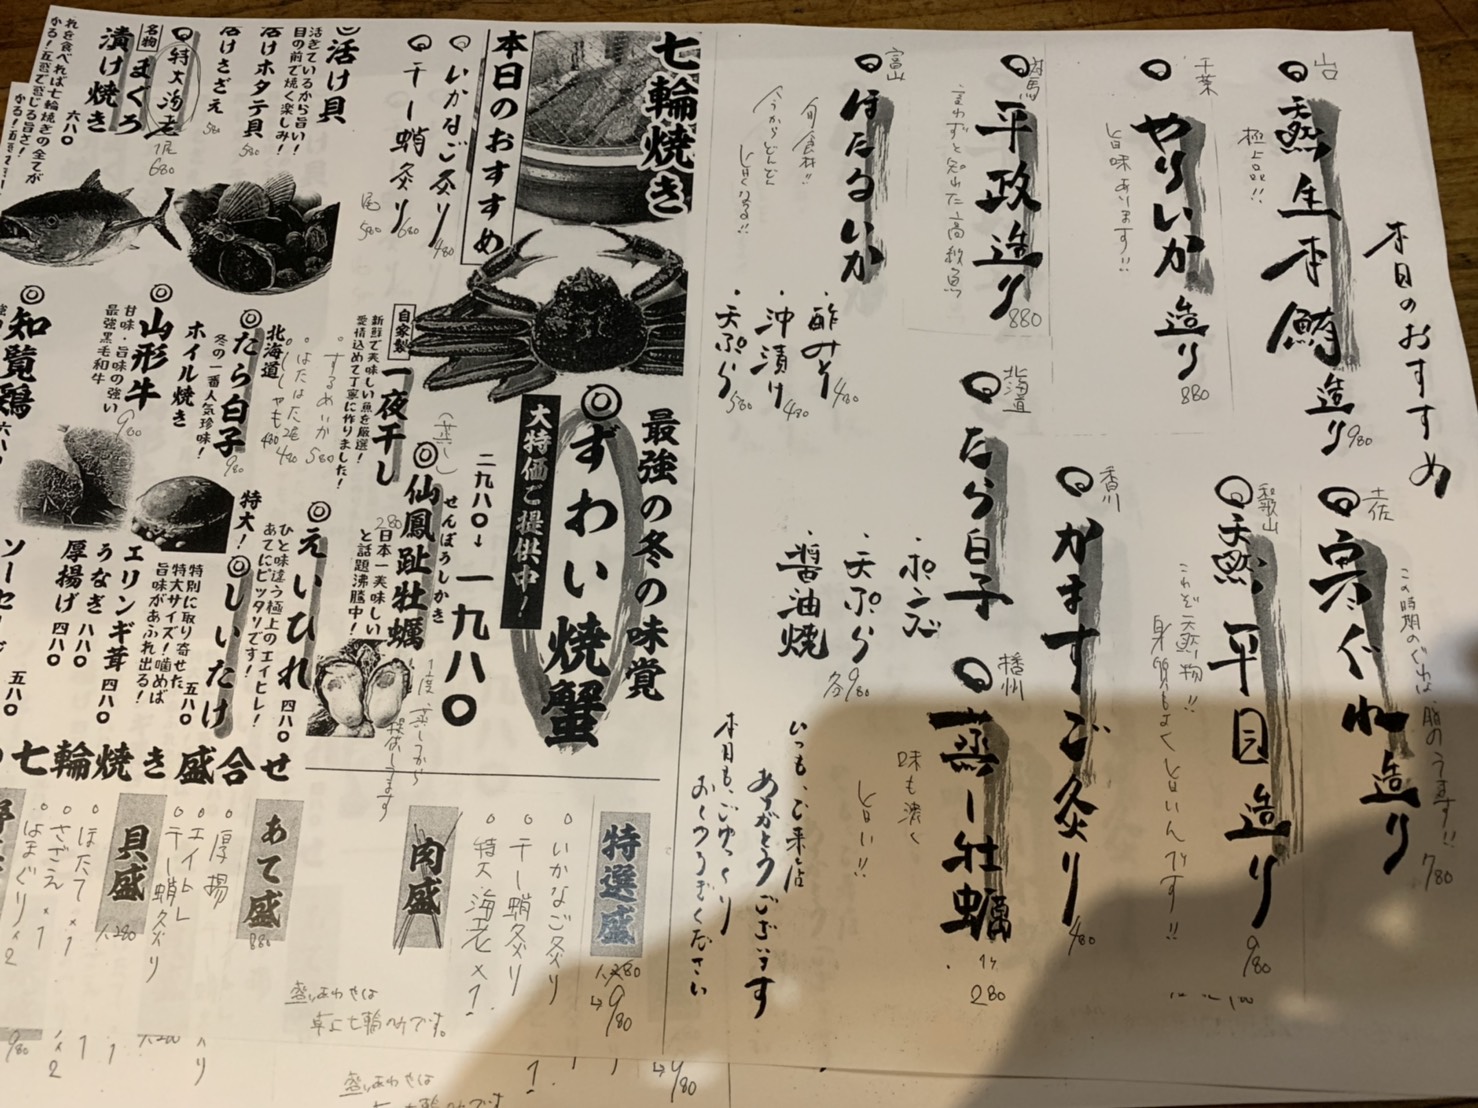 本日のおすすめ
天然生本鮪造り 980
極上品!!
千葉
やりいか造り 880
旨味あります!!
対馬
平政造り 880
言わずと知れた高級魚
富山
ほたるいか
旬食材!!
今からどんどん旨くなる!!
・酢みそ 480
・沖漬け 480
・天ぷら 580
土佐
寒ぐれ造り 780
この時期のぐれは、脂のうまず!!
和歌山
天然平目造り 980
これぞ天然物!!
身質もよく旨いんです!!
香川
かますご炙り 480
北海道
たら白子
・ポン酢
・天ぷら
醤油焼
各980
播州
蒸し牡蠣
1ヶ 280
味も濃く
旨い!!
いつも、ご来店
ありがとうございます
本日も、ごゆっくり
おくつろぎください
七輪焼き
本日のおすすめ
いかなご炙り 480
干し蛸炙り 680
580
活け貝
活きているから旨い!
目の前で焼く楽しみ!
活けホタテ貝 580
活けさざえ 580
特大海老
1尾 680
名物
まぐろ
漬け焼き 六八〇
れを食べれば七輪焼きの全てが
かる!五感で感じる旨さ!
最強の冬の味覚
ずわい焼蟹
大特価ご提供中!
二九八〇→一九八〇
自家製
一夜干し
新鮮で美味しい魚を厳選!
愛情込めて丁寧に作りました!
するめいか 580
はたはた2尾 480
ししゃも 480
(蒸し)
せんぽうしかき
仙鳳趾牡蠣
280
日本一美味しい
と話題沸騰中!
1度蒸してから
提供します
北海道
たら白子 980
冬の一番人気珍味!
ホイル焼き
山形牛 980
甘味・旨味の強い
最強黒毛和牛
知覧鶏
えいひれ 四八〇
ひと味違う極上のエイヒレ!
あてにピッタリです!
特大!
しいたけ 五八〇
特別に取り寄せた
特大サイズ!噛めば
旨味があふれ出る!
エリンギ茸 四八〇
うなぎ 八八〇
厚揚げ 四八〇
五八〇
七輪焼き盛合せ
特選盛
980
いかなご炙り
干し蛸炙り
特大海老×1
肉盛
あて盛
880
厚揚
エイヒレ
干し蛸炙り
貝盛
1,280
ほたて×1
さざえ×1
はまぐり×2
盛りあわせは
卓上七輪のみです。